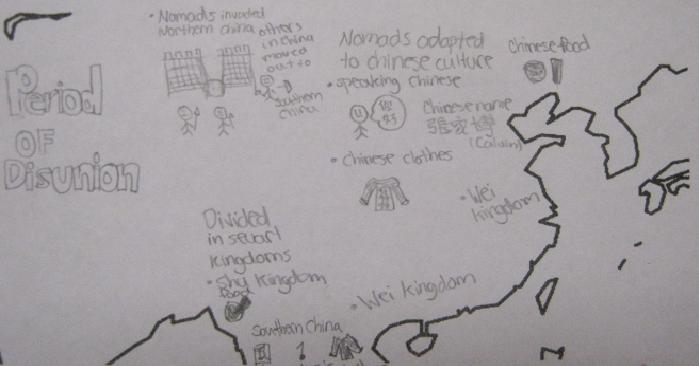 Period
OF
Disunion
• Nomads invaded
Northern China
others
in China
moved
out to
Southern
China
Nomads adapted
to chinese culture
• speaking Chinese
你
好
• Chinese clothes
Chinese food
Chinese name
張家博
(Calvin)
• Wei
kingdom
Divided
in sevarl
Kingdoms
• Shu Kingdom
food
• Wei kingdom
Southern China